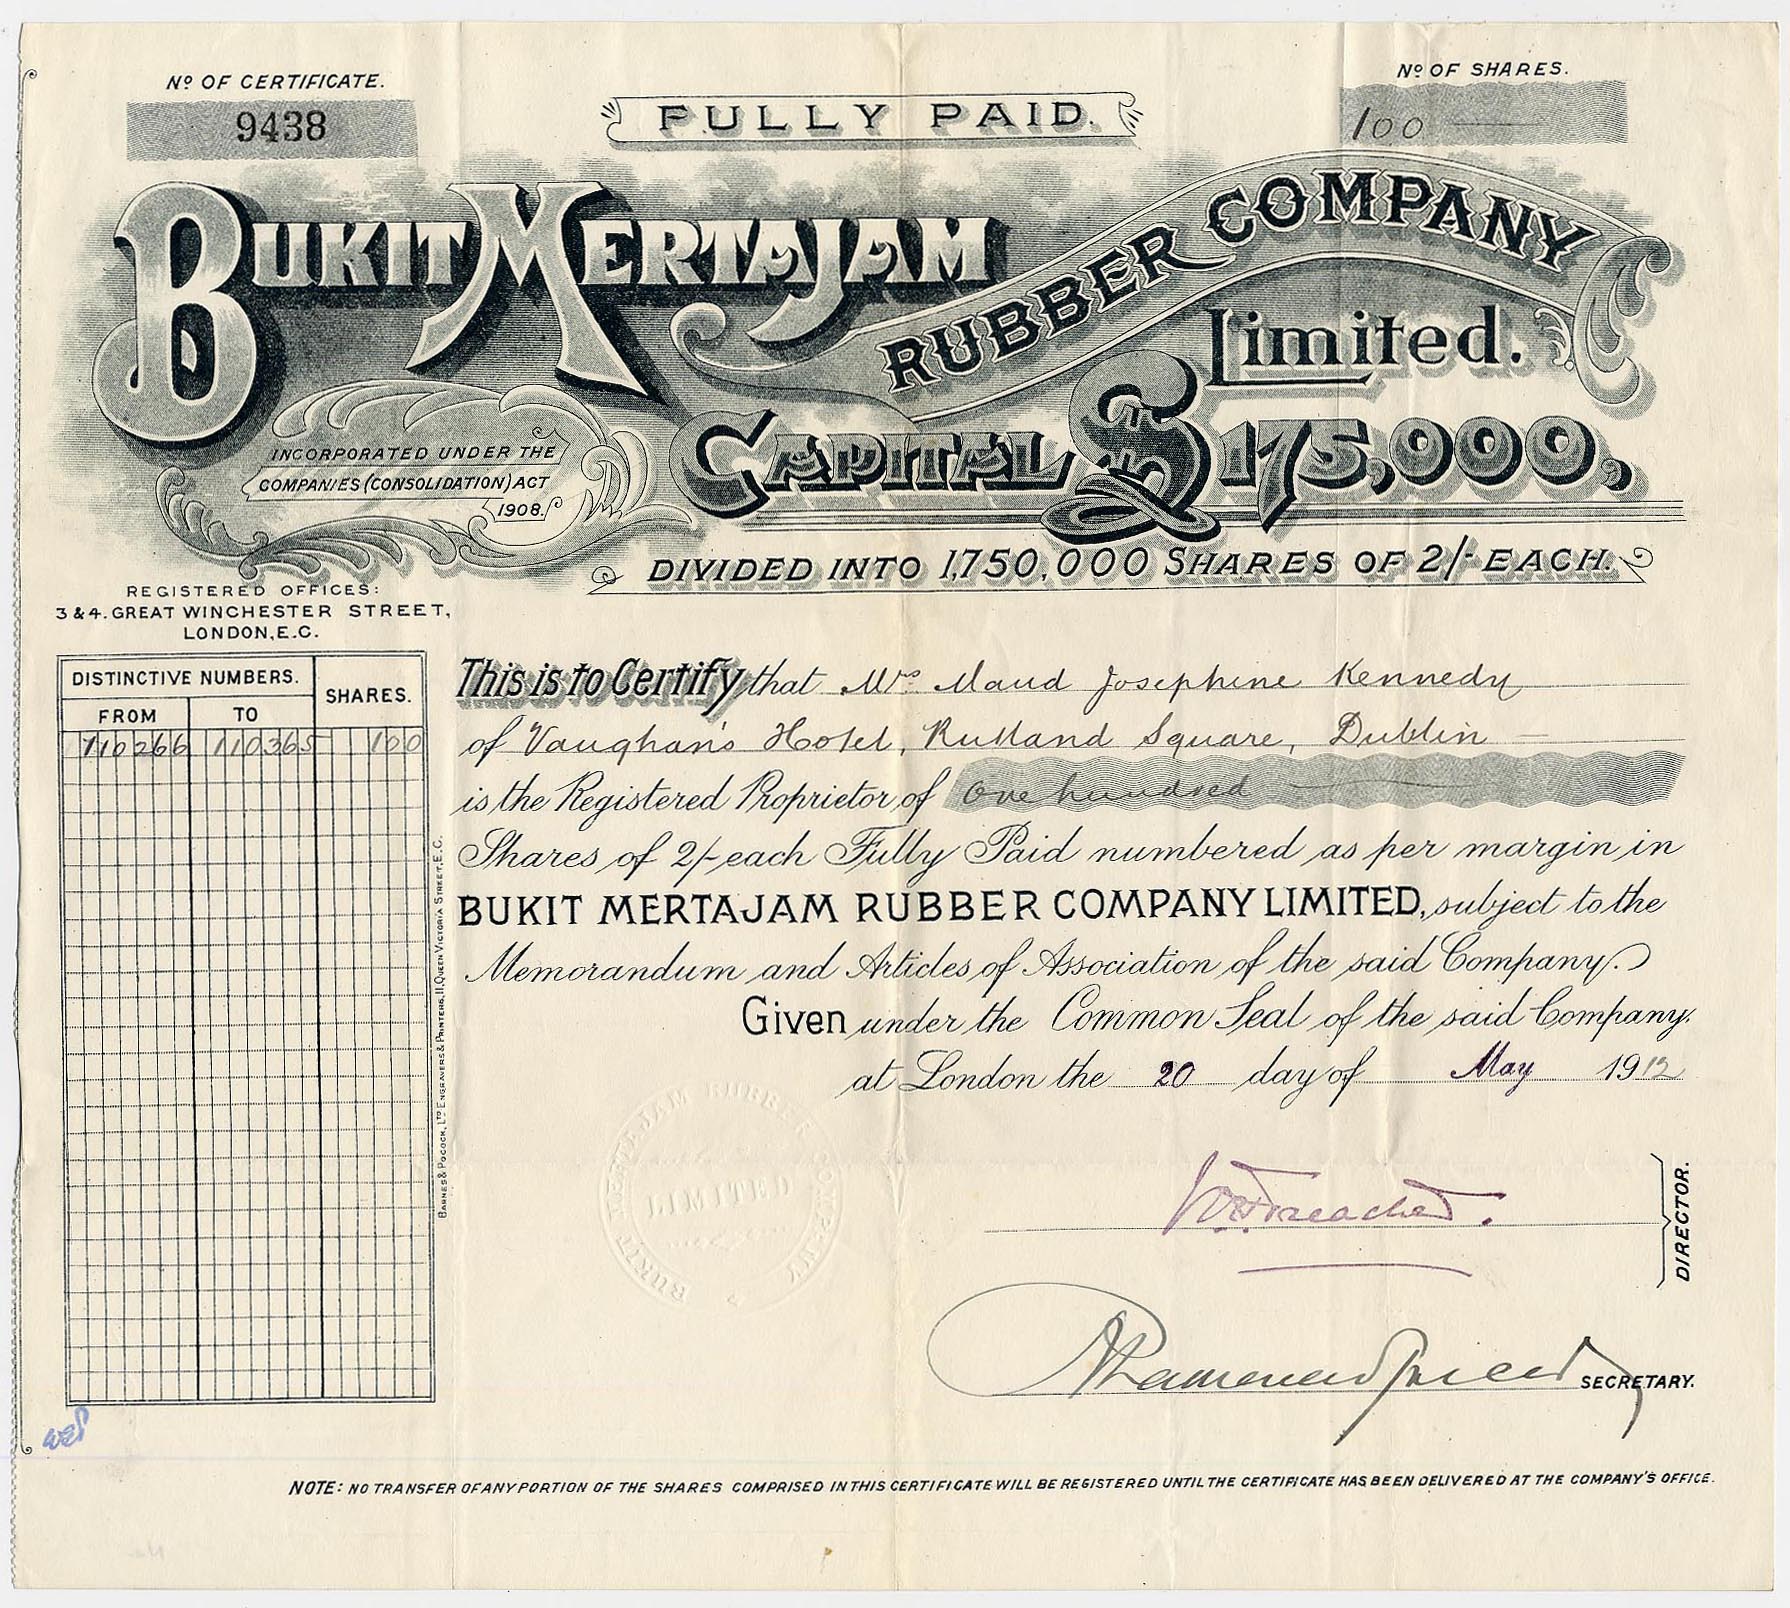 Nº OF CERTIFICATE.
9438
FULLY PAID.
Nº OF SHARES.
100
BUKIT MERTAJAM
RUBBER COMPANY
Limited.
CAPITAL £175,000,
INCORPORATED UNDER THE
COMPANIES (CONSOLIDATION) ACT
1908.
DIVIDED INTO 1,750,000 SHARES OF 2/- EACH.
REGISTERED OFFICES:
3 & 4. GREAT WINCHESTER STREET,
LONDON, E.C.
DISTINCTIVE NUMBERS. SHARES.
FROM TO
110266 110365 100
This is to Certify that Mrs Maud Josephine Kennedy
of Vaughan's Hotel, Rutland Square, Dublin
is the Registered Proprietor of One hundred
Shares of 2/- each Fully Paid numbered as per margin in
BUKIT MERTAJAM RUBBER COMPANY LIMITED, subject to the
Memorandum and Articles of Association of the said Company.
Given under the Common Seal of the said Company.
at London the 20 day of May 1912
BUKIT MERTAJAM RUBBER COMPANY
LIMITED
DIRECTOR.
SECRETARY.
BARNES & POCOCK, LTD ENGRAVERS & PRINTERS, 11, QUEEN VICTORIA STREET, E.C.
NOTE: NO TRANSFER OF ANY PORTION OF THE SHARES COMPRISED IN THIS CERTIFICATE WILL BE REGISTERED UNTIL THE CERTIFICATE HAS BEEN DELIVERED AT THE COMPANY'S OFFICE.